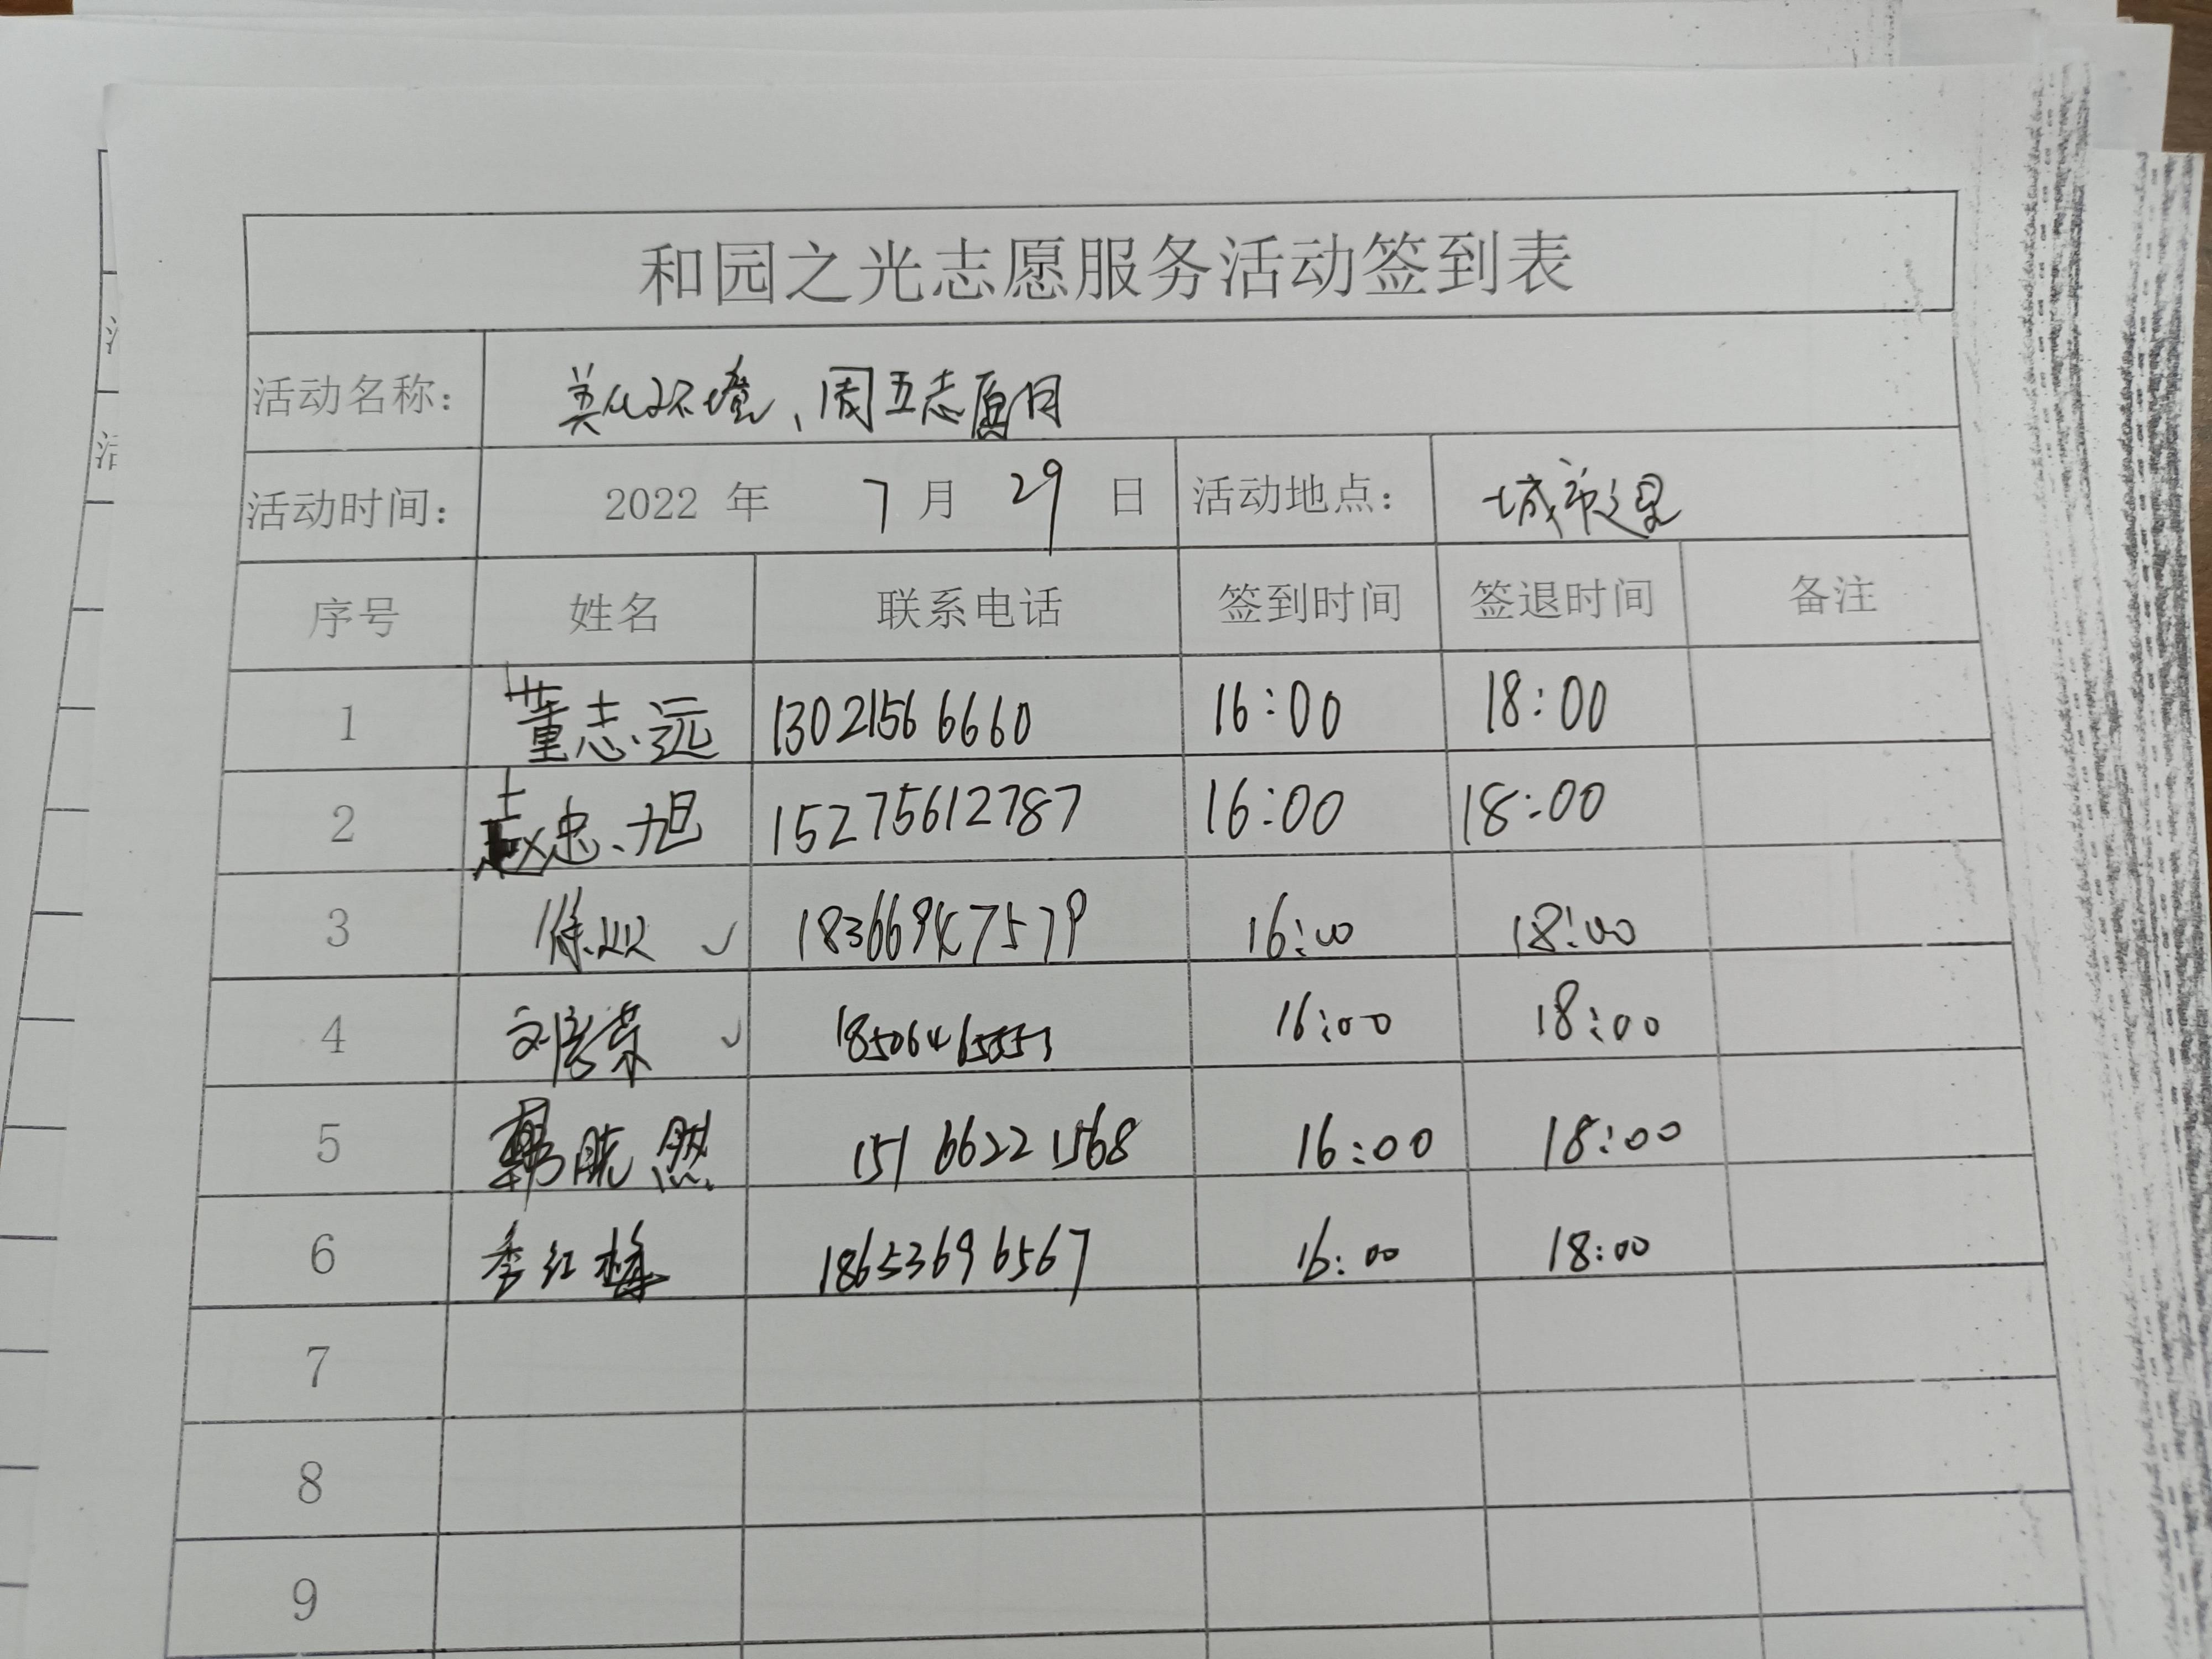 和园之光志愿服务活动签到表
活动名称： 美化环境、周五志愿日
活动时间： 2022 年 7 月 29 日 活动地点： 城市之星
序号 姓名 联系电话 签到时间 签退时间 备注
1 董志远 13021566660 16:00 18:00
2 赵忠旭 15275612787 16:00 18:00
3 徐双 ✓ 18366947579 16:00 18:00
4 刘彦荣 ✓ 16:00 18:00
5 韩晓然 15166221568 16:00 18:00
6 李红梅 18653696567 16:00 18:00
7
8
9